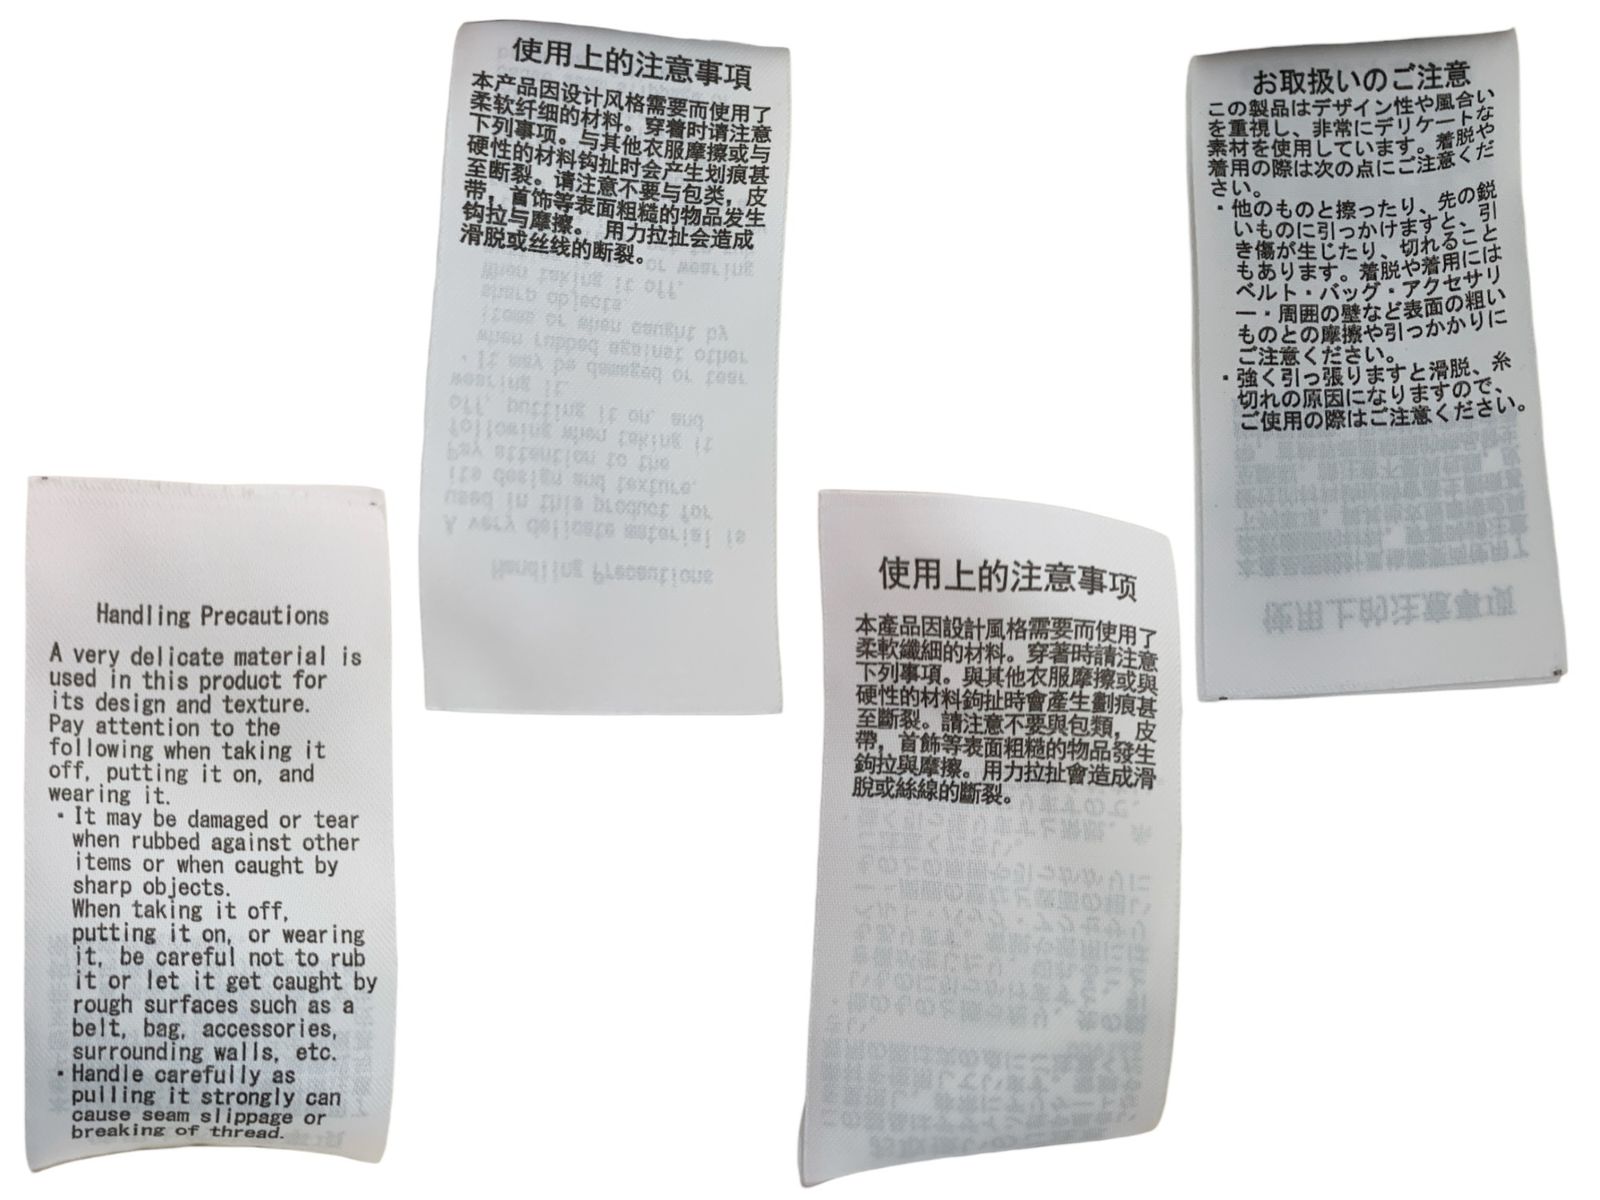 使用上的注意事項
本产品因设计风格需要而使用了
柔软纤细的材料。穿着时请注意
下列事项。与其他衣服摩擦或与
硬性的材料钩扯时会产生划痕甚
至断裂。请注意不要与包类，皮
带，首饰等表面粗糙的物品发生
钩拉与摩擦。 用力拉扯会造成
滑脱或丝线的断裂。
お取扱いのご注意
この製品はデザイン性や風合い
を重視し、非常にデリケートな
素材を使用しています。着脱や
着用の際は次の点にご注意くだ
さい。
・他のものと擦ったり、先の鋭
いものに引っかけますと、引
き傷が生じたり、切れること
もあります。着脱や着用には
ベルト・バッグ・アクセサリ
ー・周囲の壁など表面の粗い
ものとの摩擦や引っかかりに
ご注意ください。
・強く引っ張りますと滑脱、糸
切れの原因になりますので、
ご使用の際はご注意ください。
Handling Precautions
A very delicate material is
used in this product for
its design and texture.
Pay attention to the
following when taking it
off, putting it on, and
wearing it.
・It may be damaged or tear
when rubbed against other
items or when caught by
sharp objects.
When taking it off,
putting it on, or wearing
it, be careful not to rub
it or let it get caught by
rough surfaces such as a
belt, bag, accessories,
surrounding walls, etc.
・Handle carefully as
pulling it strongly can
cause seam slippage or
breaking of thread.
使用上的注意事项
本產品因設計風格需要而使用了
柔軟纖細的材料。穿著時請注意
下列事項。與其他衣服摩擦或與
硬性的材料鉤扯時會產生劃痕甚
至斷裂。請注意不要與包類，皮
帶，首飾等表面粗糙的物品發生
鉤拉與摩擦。用力拉扯會造成滑
脫或絲線的斷裂。